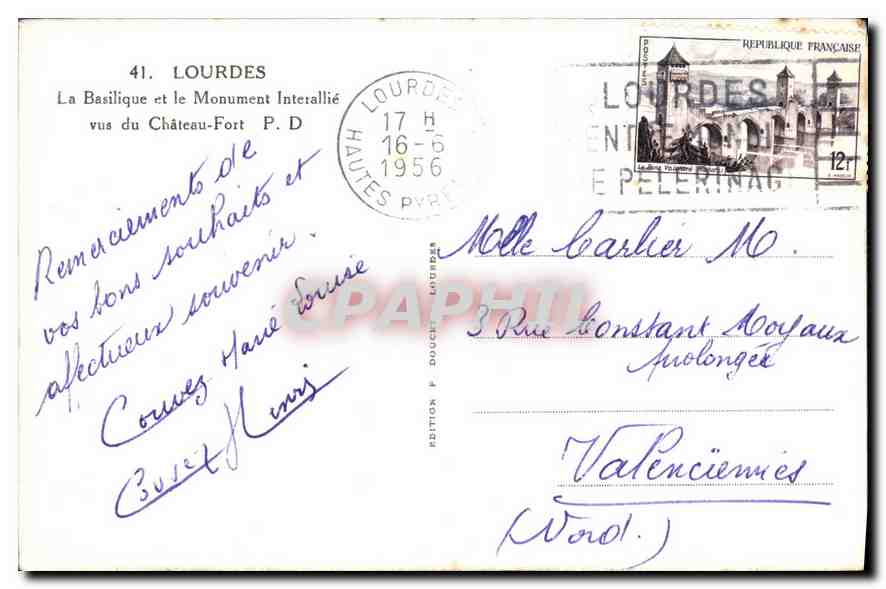 41. LOURDES
La Basilique et le Monument Interallié
vus du Château-Fort P. D
LOURDES
17 H
16-6
1956
HAUTES PYRE
POSTES
REPUBLIQUE FRANÇAISE
12F
LOURDES
PELERINAG
Remerciements de
vos bons souhaits et
affectueux souvenir.
Couvez Marie Louise
Couvez Henri
EDITION F DOUCET LOURDES
Melle Carlier M.
3 Rue Constant Moyaux
prolongée
Valenciennes
(Nord.)
CPAPHIL